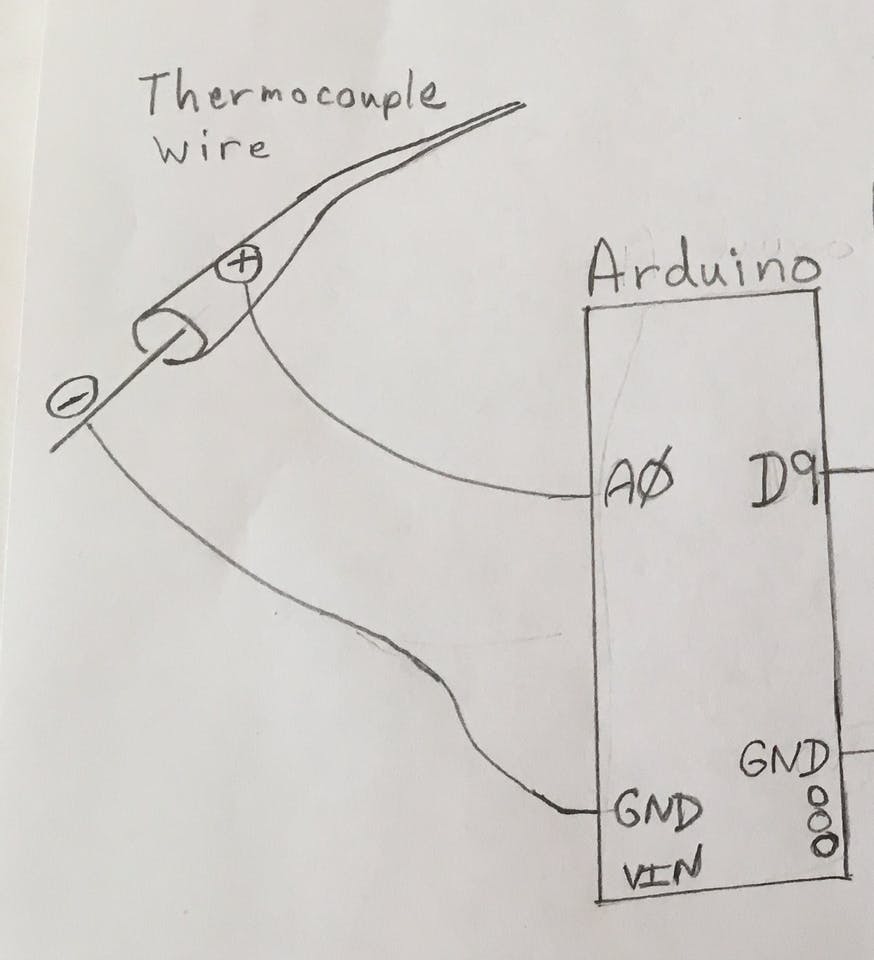 Thermocouple
wire
+
Arduino
−
AØ D9
GND
GND
VIN